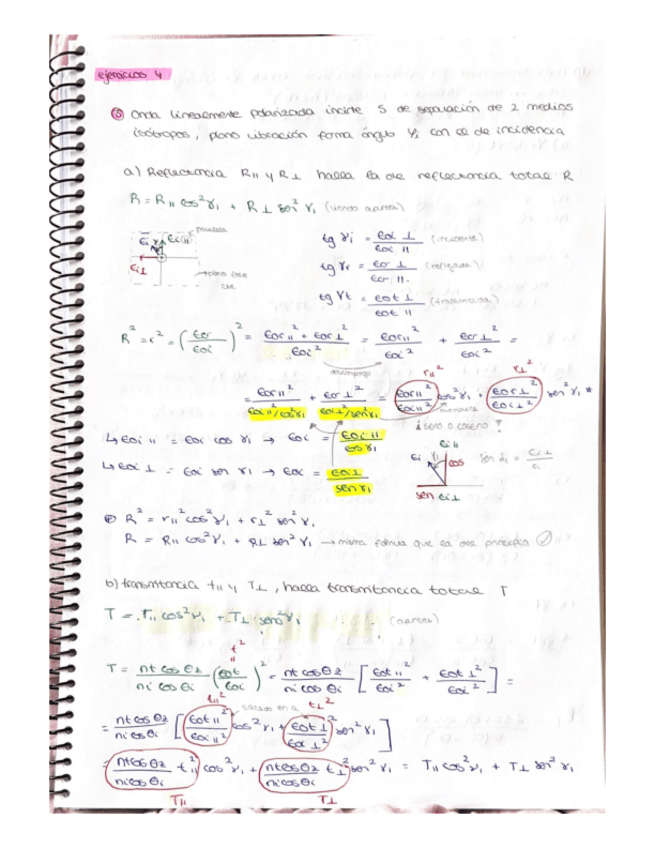 ejercicios 4
③ Onda linealmente polarizada incide S de separación de 2 medios
isótropos, plano vibración forma ángulo γi con el de incidencia
a) Reflectancia R∥ y R⊥ halla la de reflectancia total R
R = R∥ cos²γi + R⊥ sen²γi (viendo apuntes)
tg γi = Eoi⊥ / Eoi∥ (incidente)
tg γr = Eor⊥ / Eor∥ (reflejada)
tg γt = Eot⊥ / Eot∥ (transmitida)
Ei γ Ei∥
Ei⊥
R² = r² = (Eor / Eoi)² = (Eor∥² + Eor⊥²) / Eoi² = Eor∥² / Eoi² + Eor⊥² / Eoi² =
r∥² r⊥²
= Eor∥² / (Eoi∥²/cos²γi) + Eor⊥² / (Eoi⊥²/sen²γi) = Eor∥² / Eoi∥² cos²γi + Eor⊥² / Eoi⊥² sen²γi *
¿seno o coseno?
↳ Eoi∥ = Eoi cos γi → Eoi = Eoi∥ / cos γi
↳ Eoi⊥ = Eoi sen γi → Eoi = Eoi⊥ / sen γi
Ei∥
Ei γi cos
sen Ei⊥
R² = r∥² cos²γi + r⊥² sen²γi
R = R∥ cos²γi + R⊥ sen²γi → misma fórmula que la del principio
b) transmitancia T∥ y T⊥, halla transmitancia total T
T = T∥ cos²γi + T⊥ sen²γi (apuntes)
t²
T = nt cos θ2 / ni cos θi (Eot / Eoi)² = nt cos θ2 / ni cos θi [Eot∥² / Eoi² + Eot⊥² / Eoi²] =
t∥² sacado en a t⊥²
= nt cos θ2 / ni cos θi [Eot∥² / Eoi∥² cos²γi + Eot⊥² / Eoi⊥² sen²γi]
= nt cos θ2 / ni cos θi t∥² cos²γi + nt cos θ2 / ni cos θi t⊥² sen²γi = T∥ cos²γi + T⊥ sen²γi
T∥ T⊥